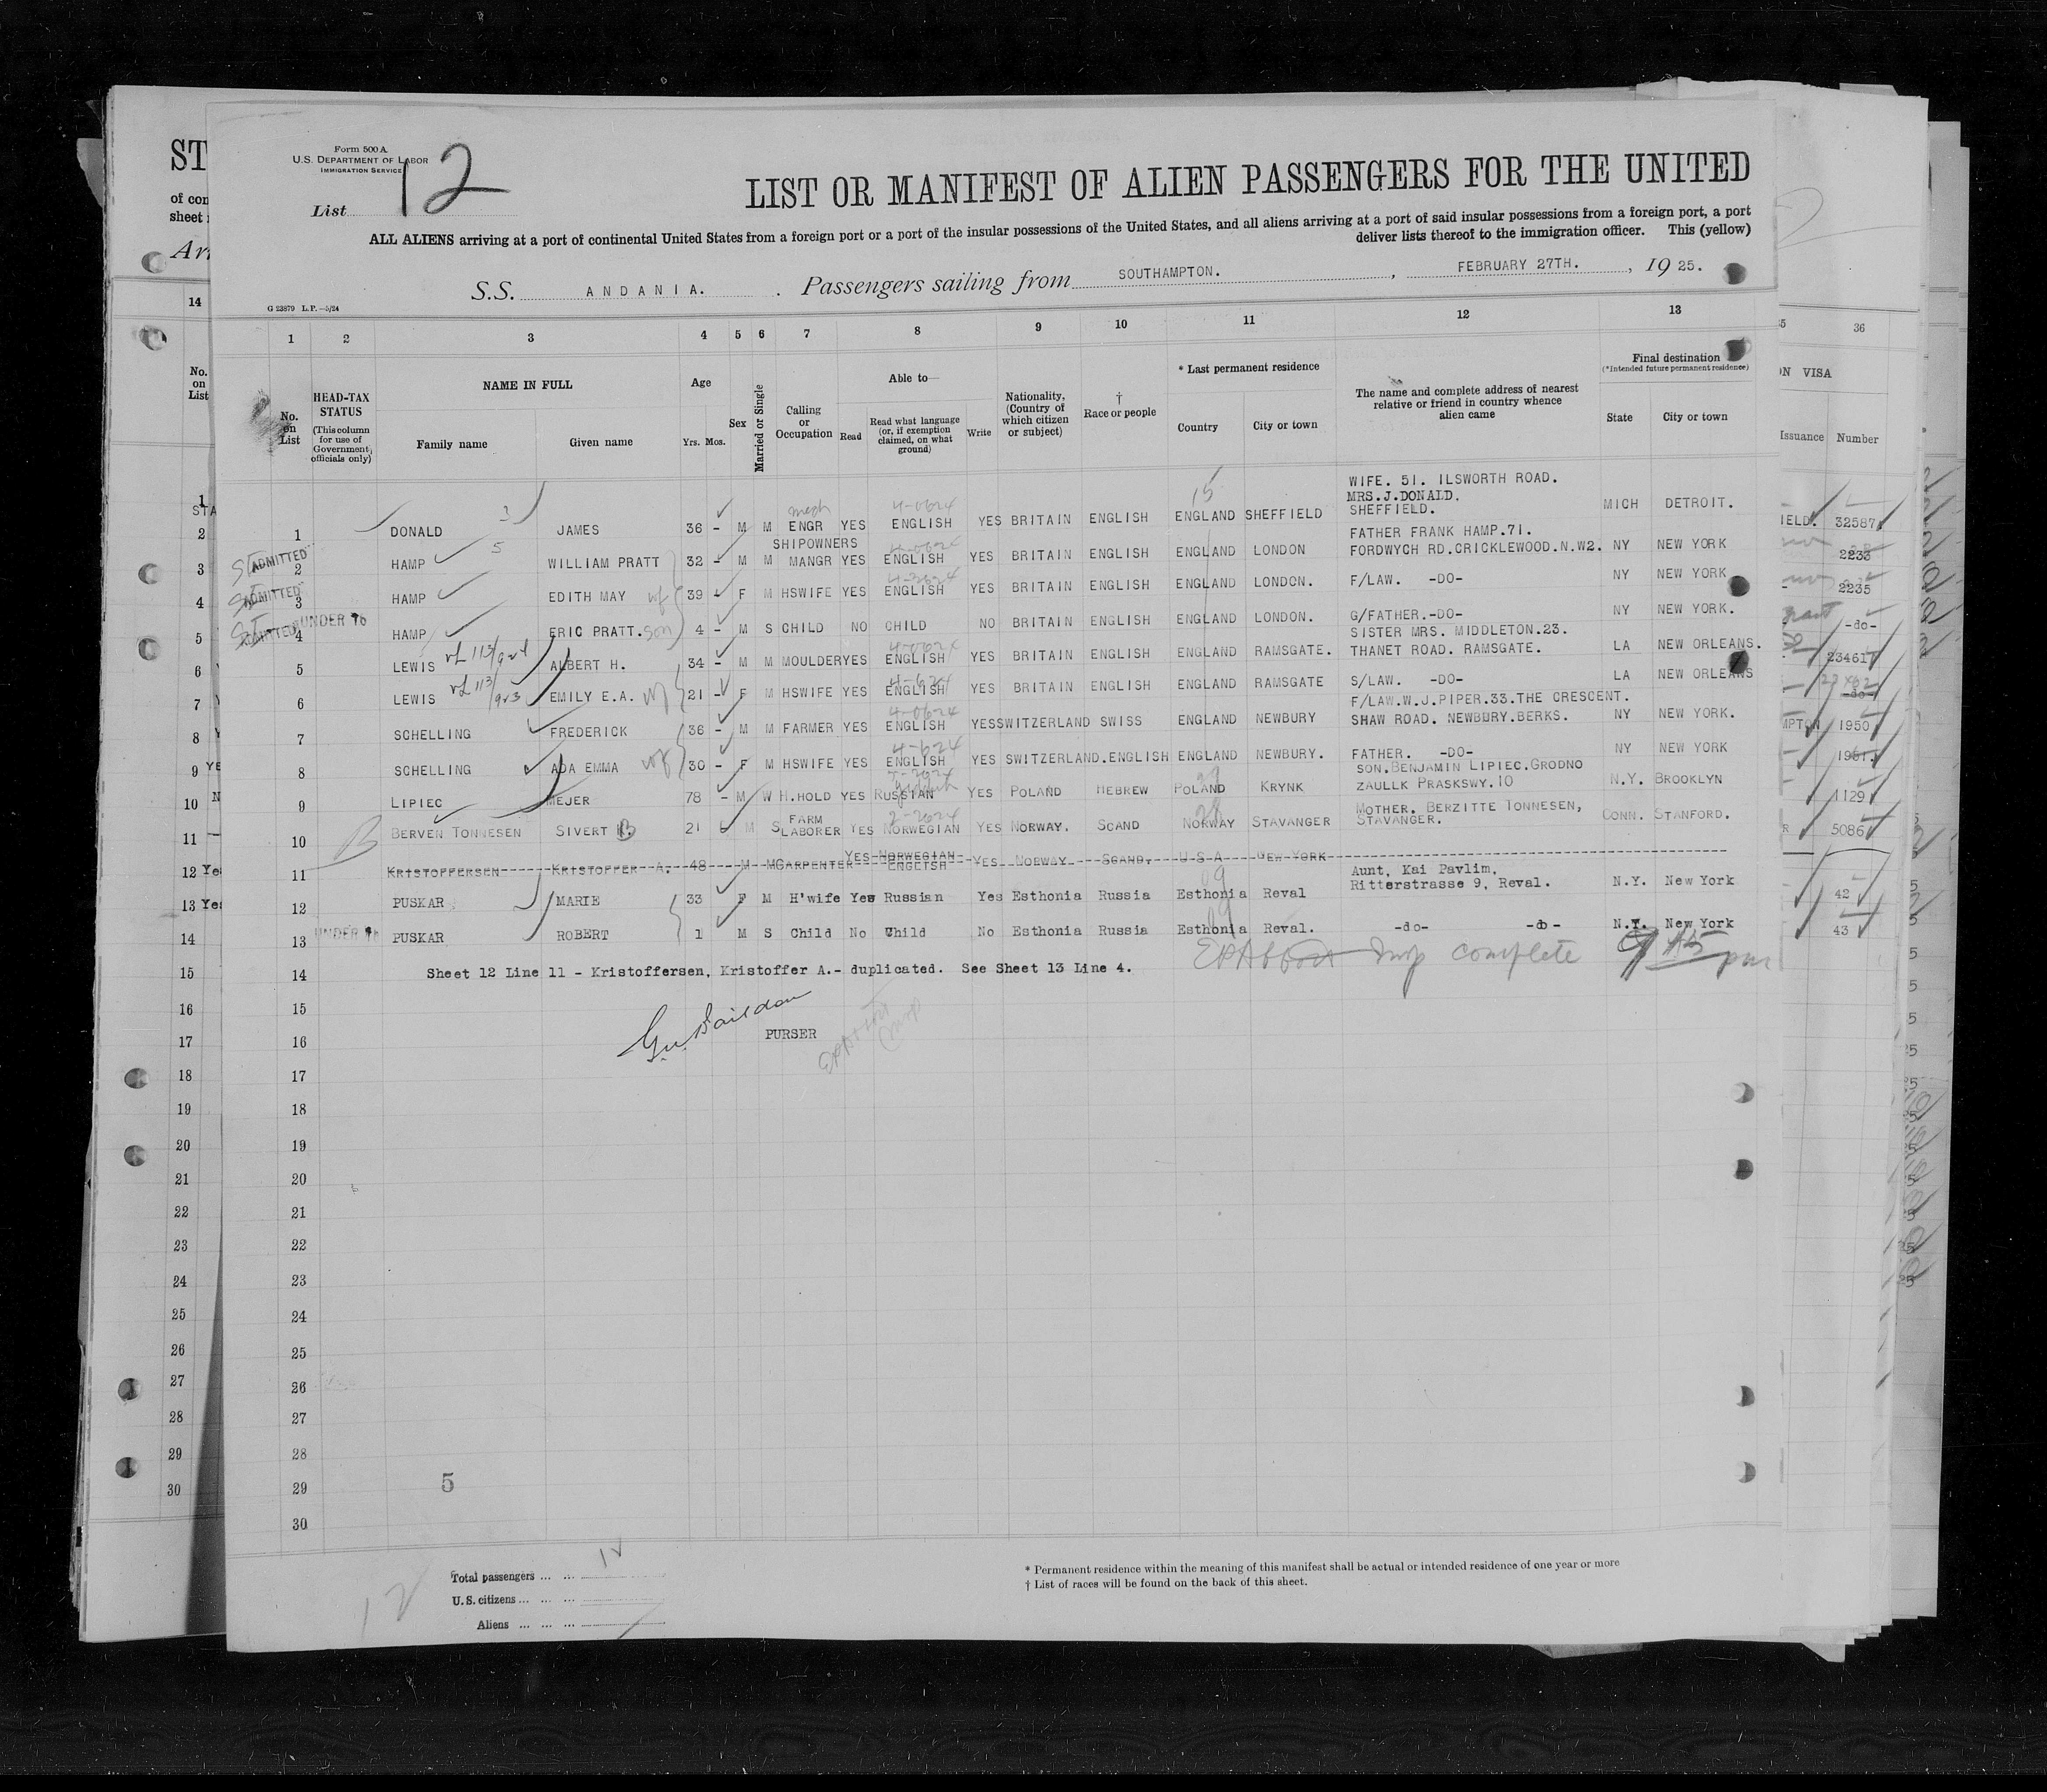 Form 500 A.
U.S. DEPARTMENT OF LABOR
IMMIGRATION SERVICE
List 12
LIST OR MANIFEST OF ALIEN PASSENGERS FOR THE UNITED
ALL ALIENS arriving at a port of continental United States from a foreign port or a port of the insular possessions of the United States, and all aliens arriving at a port of said insular possessions from a foreign port, a port
deliver lists thereof to the immigration officer. This (yellow)
S.S. ANDANIA. Passengers sailing from SOUTHAMPTON. , FEBRUARY 27TH. , 19 25.
G 23879 L.P.—5/24
1 2 3 4 5 6 7 8 9 10 11 12 13
No. on List
HEAD-TAX STATUS (This column for use of Government officials only)
NAME IN FULL
Family name Given name
Age
Yrs. Mos.
Sex
Married or Single
Calling or Occupation
Able to—
Read
Read what language (or, if exemption claimed, on what ground)
Write
Nationality. (Country of which citizen or subject)
† Race or people
* Last permanent residence
Country City or town
The name and complete address of nearest relative or friend in country whence alien came
Final destination
(*Intended future permanent residence)
State City or town
1 DONALD JAMES 36 - M M mech ENGR YES ENGLISH YES BRITAIN ENGLISH ENGLAND SHEFFIELD WIFE. 51. ILSWORTH ROAD. MRS.J.DONALD. SHEFFIELD. MICH DETROIT.
ADMITTED 2 HAMP WILLIAM PRATT 32 - M M SHIPOWNERS MANGR YES ENGLISH YES BRITAIN ENGLISH ENGLAND LONDON FATHER FRANK HAMP.71. FORDWYCH RD.CRICKLEWOOD.N.W2. NY NEW YORK
ADMITTED 3 HAMP EDITH MAY wf 39 - F M HSWIFE YES ENGLISH YES BRITAIN ENGLISH ENGLAND LONDON. F/LAW. -DO- NY NEW YORK
ADMITTED UNDER 16 4 HAMP ERIC PRATT. son 4 - M S CHILD NO CHILD NO BRITAIN ENGLISH ENGLAND LONDON. G/FATHER.-DO- NY NEW YORK.
5 LEWIS ALBERT H. 34 - M M MOULDER YES ENGLISH YES BRITAIN ENGLISH ENGLAND RAMSGATE. SISTER MRS. MIDDLETON.23. THANET ROAD. RAMSGATE. LA NEW ORLEANS.
6 LEWIS EMILY E.A. wf 21 - F M HSWIFE YES ENGLISH YES BRITAIN ENGLISH ENGLAND RAMSGATE S/LAW. -DO- LA NEW ORLEANS
7 SCHELLING FREDERICK 36 - M M FARMER YES ENGLISH YES SWITZERLAND SWISS ENGLAND NEWBURY F/LAW.W.J.PIPER.33.THE CRESCENT. SHAW ROAD. NEWBURY.BERKS. NY NEW YORK.
8 SCHELLING ADA EMMA wf 30 - F M HSWIFE YES ENGLISH YES SWITZERLAND. ENGLISH ENGLAND NEWBURY. FATHER. -DO- NY NEW YORK
9 LIPIEC MEJER 78 - M W H.HOLD YES RUSSIAN YES POLAND HEBREW POLAND KRYNK SON.BENJAMIN LIPIEC.GRODNO ZAULLK PRASKSWY.10 N.Y. BROOKLYN
10 BERVEN TONNESEN SIVERT B. 21 M S FARM LABORER YES NORWEGIAN YES NORWAY. SCAND NORWAY STAVANGER MOTHER. BERZITTE TONNESEN, STAVANGER. CONN. STANFORD.
11 KRISTOFFERSEN KRISTOFFER A. 48 M M CARPENTER YES NORWEGIAN ENGLISH YES NORWAY SCAND. U S A NEW YORK
12 PUSKAR MARIE 33 F M H'wife Yes Russian Yes Esthonia Russia Esthonia Reval Aunt, Kai Pavlim, Ritterstrasse 9, Reval. N.Y. New York
UNDER 16 13 PUSKAR ROBERT 1 M S Child No Child No Esthonia Russia Esthonia Reval. -do- -do- N.Y. New York
14 Sheet 12 Line 11 - Kristoffersen, Kristoffer A.- duplicated. See Sheet 13 Line 4.
15
16 PURSER
17
18
19
20
21
22
23
24
25
26
27
28
29 5
30
Total passengers ... ... 12
U.S. citizens ... ... ...
Aliens ... ... ...
12
* Permanent residence within the meaning of this manifest shall be actual or intended residence of one year or more
† List of races will be found on the back of this sheet.